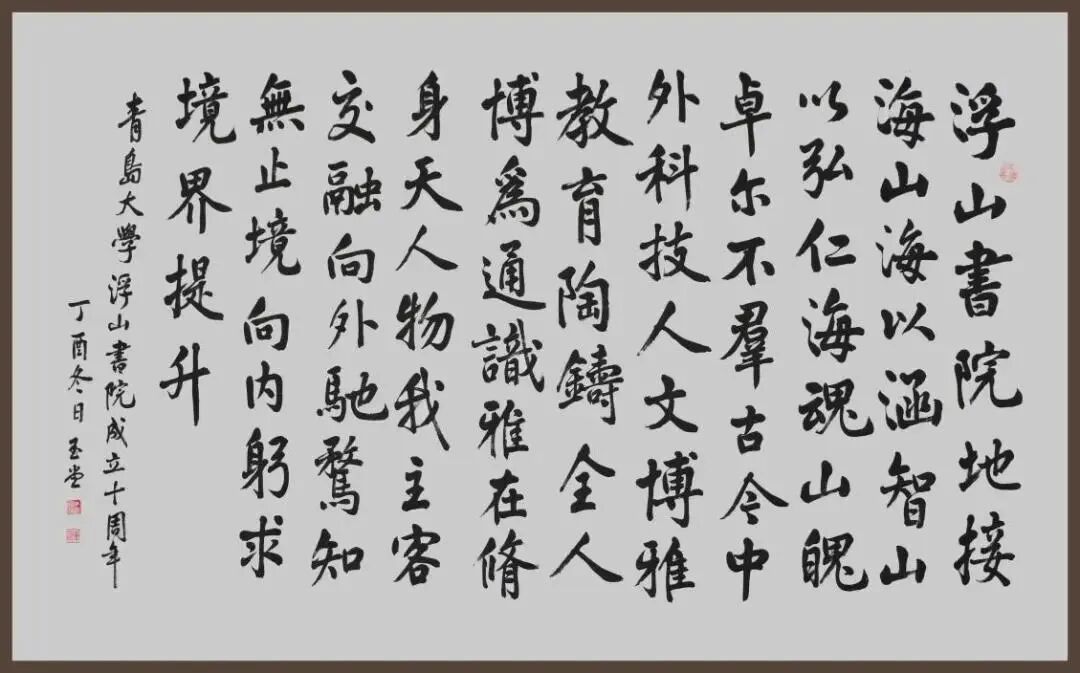 浮山書院地接
海山海以涵智山
以弘仁海魂山魄
卓尔不羣古今中
外科技人文博雅
教育陶鑄全人
博爲通識雅在脩
身天人物我主客
交融向外馳騖知
無止境向内躬求
境界提升
青島大學浮山書院成立十周年
丁酉冬日玉堂